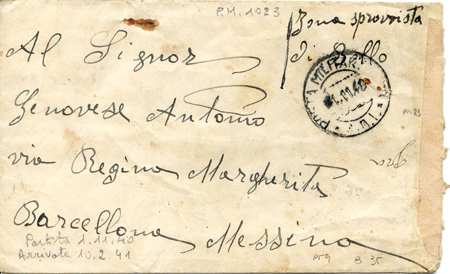 P.M. 1023
Zona sprovvista
di bollo
Al Signor
POSTA MILITARE
.11.40
Genovese Antonio
via Regina Margherita
Barcellona
Messina
Partita 1.11.40
Arrivata 10.2.41
B 35